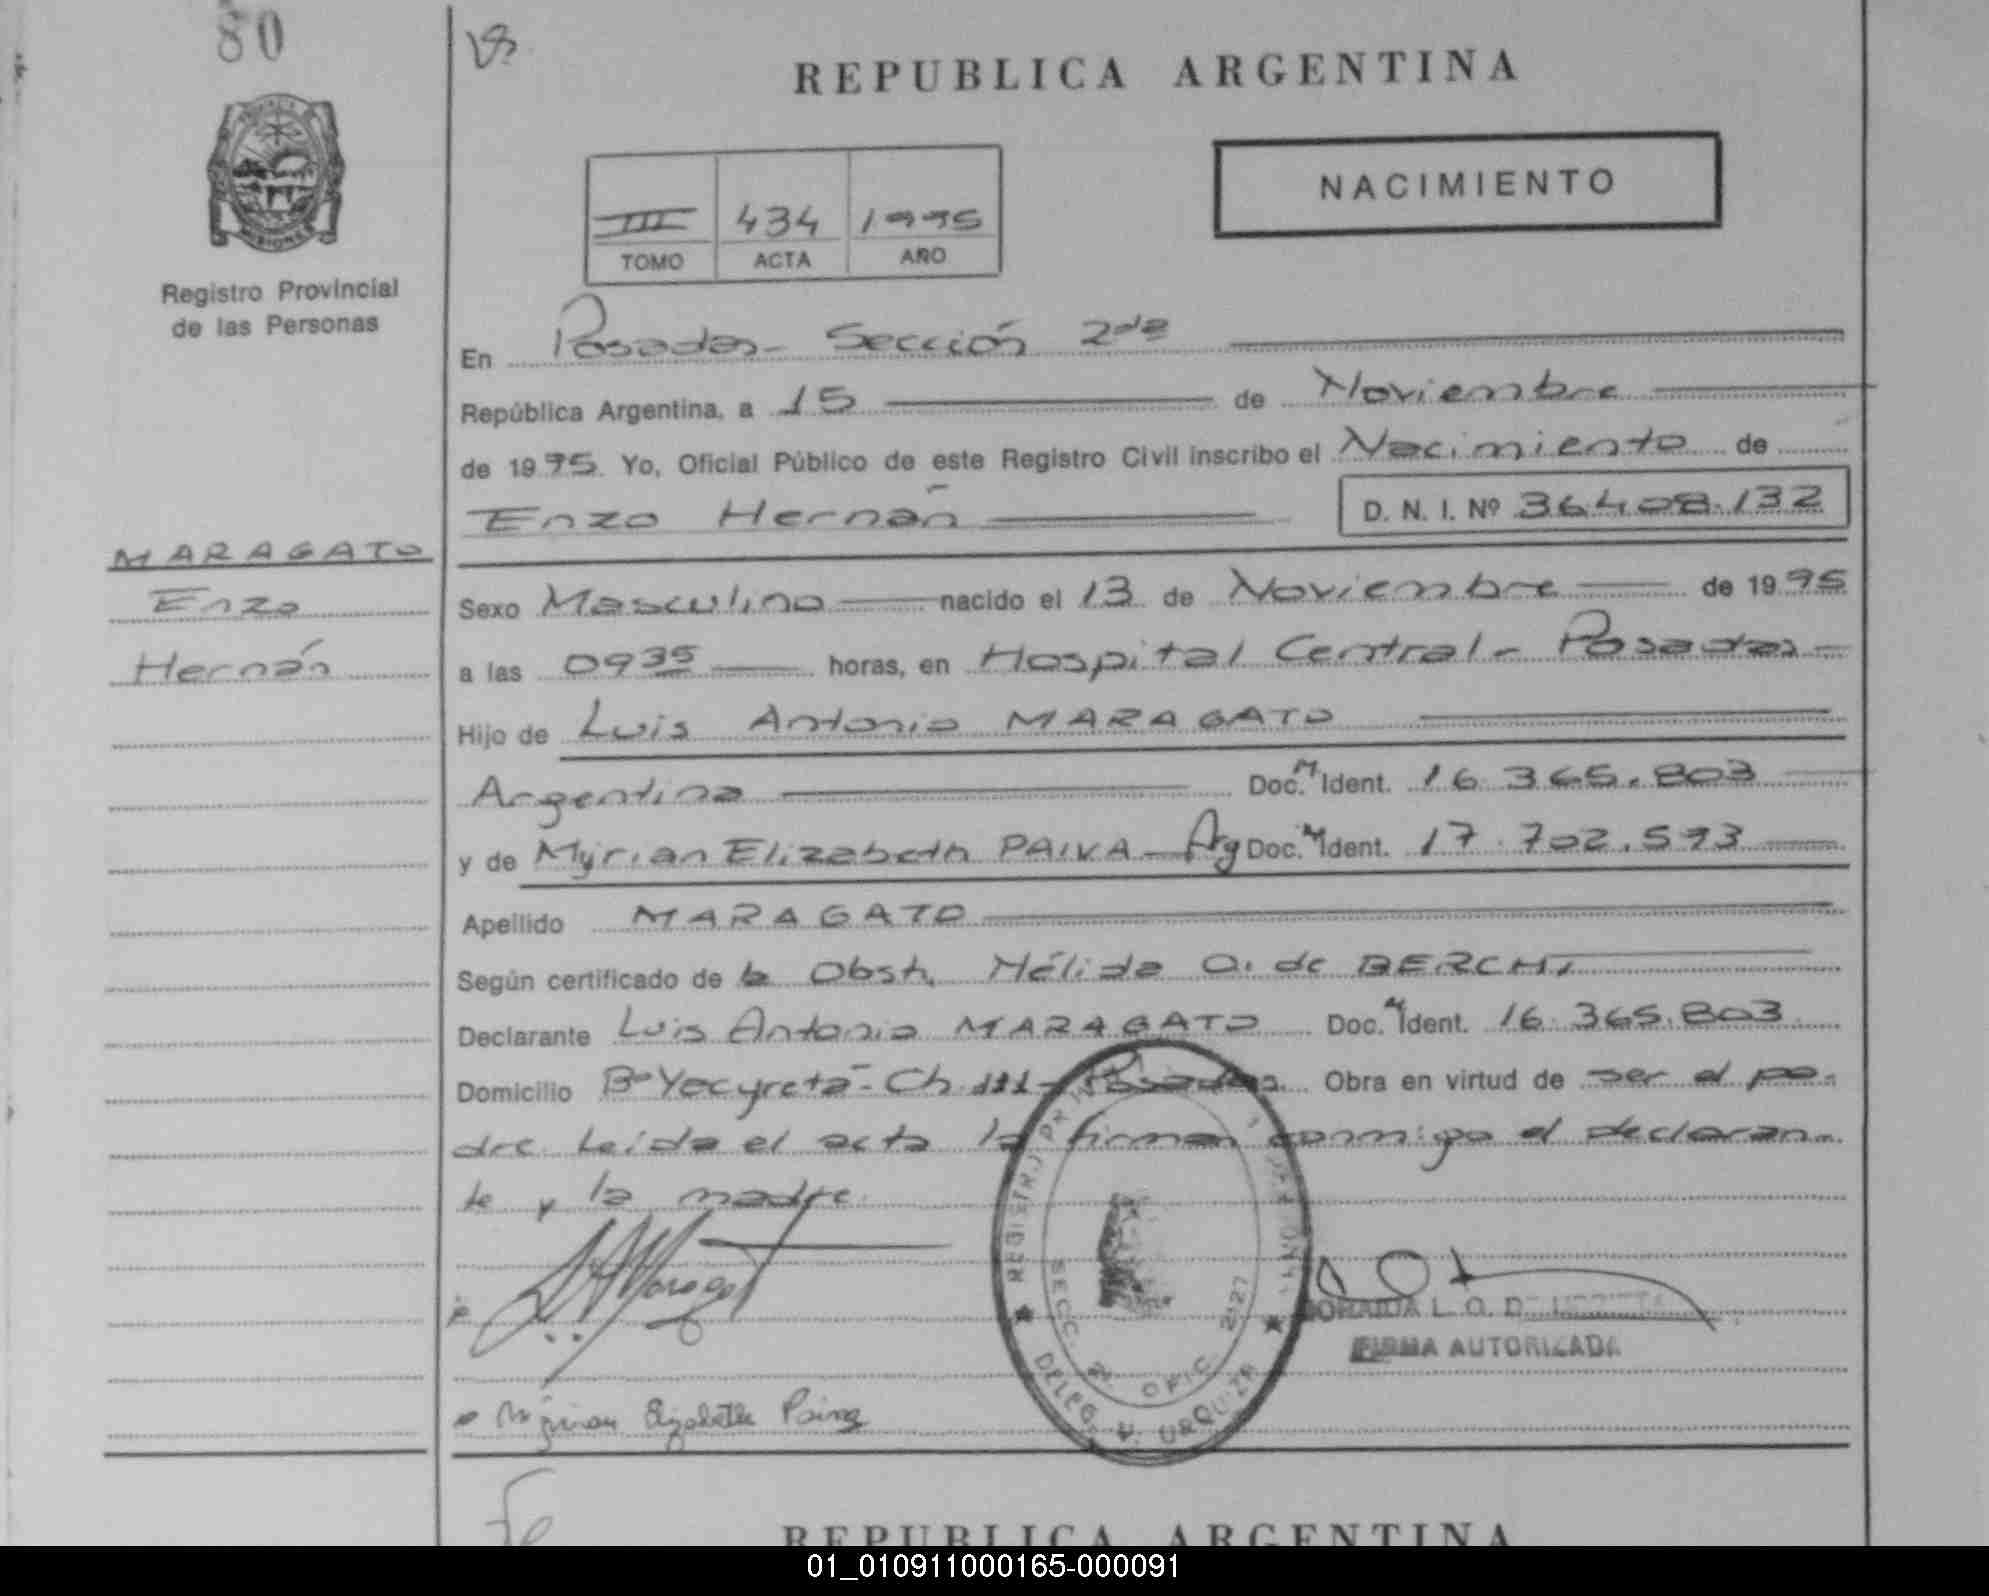 80
REPUBLICA ARGENTINA
NACIMIENTO
III 434 1995
TOMO ACTA AÑO
MISIONES
Registro Provincial
de las Personas
En Posadas- Sección 2da
República Argentina, a 15 de Noviembre
de 1995. Yo, Oficial Público de este Registro Civil inscribo el Nacimiento de
Enzo Hernán D. N. I. Nº 36.408.132
MARAGATO
Enzo
Hernán
Sexo Masculino nacido el 13 de Noviembre de 1995
a las 0935 horas, en Hospital Central- Posadas-
Hijo de Luis Antonio MARAGATO
Argentina Doc. M Ident. 16.365.803
y de Myrian Elizabeth PAIVA - Arg Doc. M Ident. 17.702.593
Apellido MARAGATO
Según certificado de la Obst. Nélida O. de BERCHI
Declarante Luis Antonio MARAGATO Doc. M Ident. 16.365.803
Domicilio Bº Yacyretá- Ch 111- Posadas. Obra en virtud de ser el pa-
dre. Leída el acta la firman conmigo el declaran-
te y la madre.
REGISTRO PROV. DE LAS PERSONAS
SECC. 2ª OFIC. 2127
DELEG. V. URQUIZA
L. O. DE
FIRMA AUTORIZADA
Myrian Elizabeth Paiva
REPUBLICA ARGENTINA
01_010911000165-000091